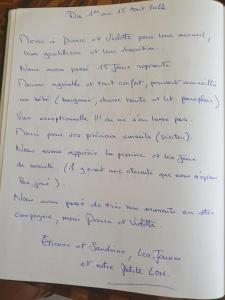 Du 1er au 15 Août
Merci à Pierre et Violette pour leur accueil,
leur gentillesse et leur disposition.
Nous avons passé 15 jours reposants
Maison agréable et tout confort, pouvant accueillir
un bébé (baignoire, chaise haute et lit parapluie)
Vue exceptionnelle !!! on ne s'en lasse pas.
Merci pour vos précieux conseils (visites)
Nous avons apprécié la piscine et les jeux
de société (il y avait une éternité que nous n'avions
pas joué).
Nous avons passé de très bon moments en votre
compagnie, merci Pierre et Violette.
Etienne et Sandrine, Léo
et notre petite Lou.